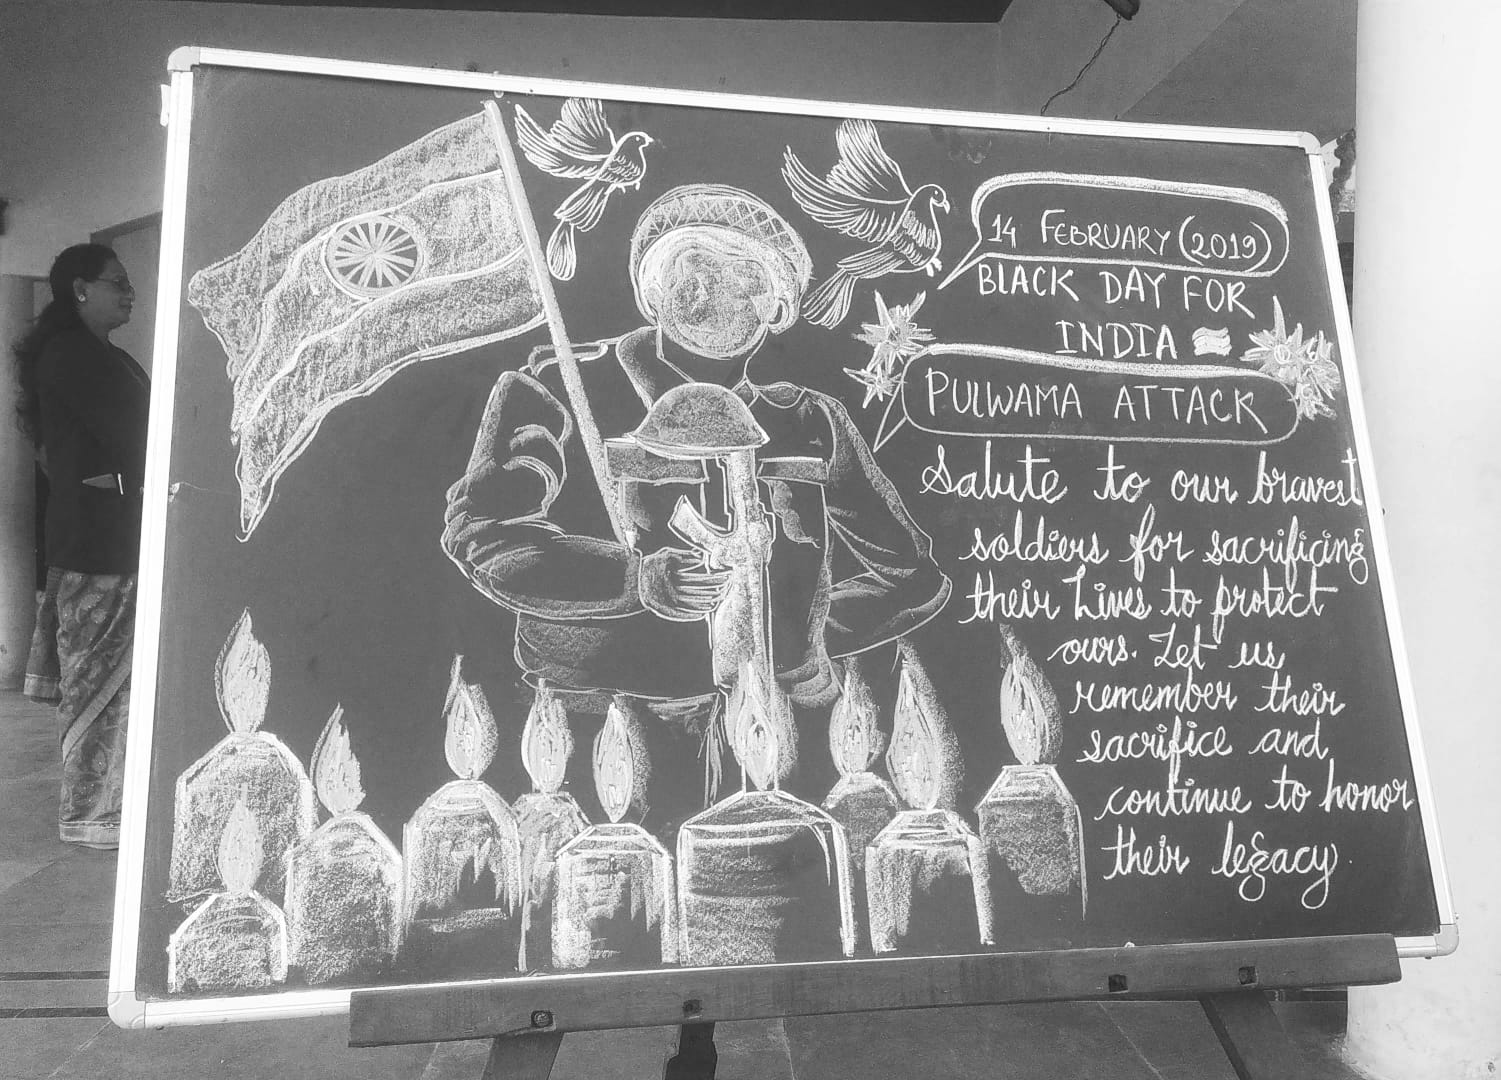 14 FEBRUARY (2019)
BLACK DAY FOR
INDIA
PULWAMA ATTACK
Salute to our bravest
soldiers for sacrificing
their Lives to protect
ours. Let us
remember their
sacrifice and
continue to honor
their legacy.